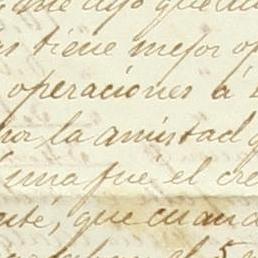 que dijo que
tiene mejor op
operaciones á
la amistad
fué, el cre
que cuand
el 5